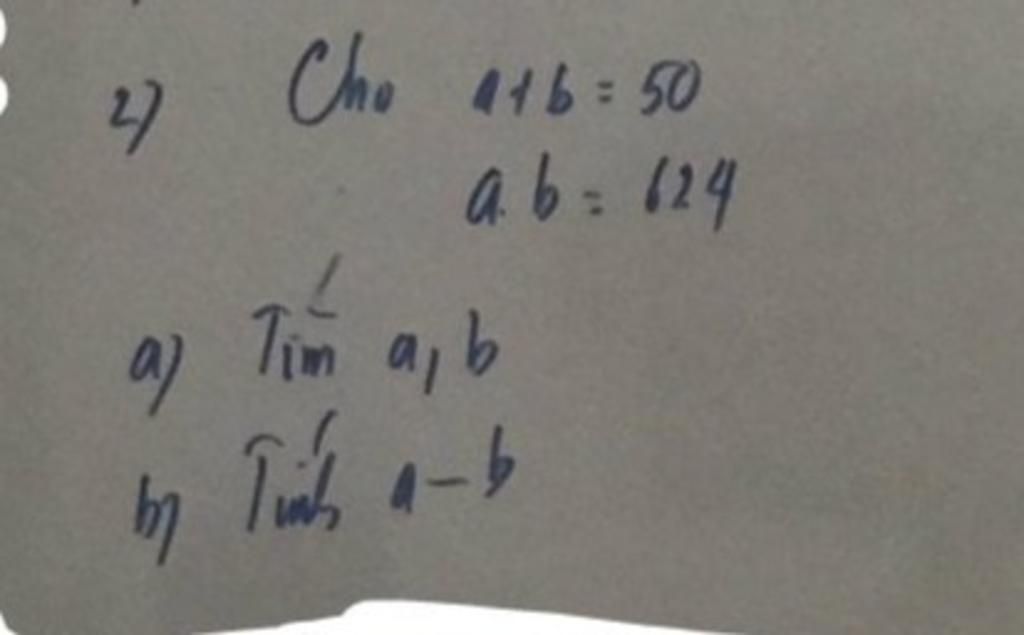 2) Cho a+b = 50
a.b = 624
a) Tìm a, b
b) Tính a-b